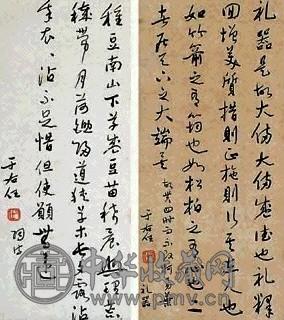 礼器是故大備大備盛德也礼釋
回增美質措則正施則行其在人也
如竹箭之有筠也如松柏之有心也二
者居天下之大端矣
故貫四時而不改柯易葉
礼器
于右任
種豆南山下草盛豆苗稀晨興理荒
穢帶月荷鋤歸道狹草木長夕露沾
我衣衣沾不足惜但使願無違
于右任
中华收藏网
www.pmv.cn